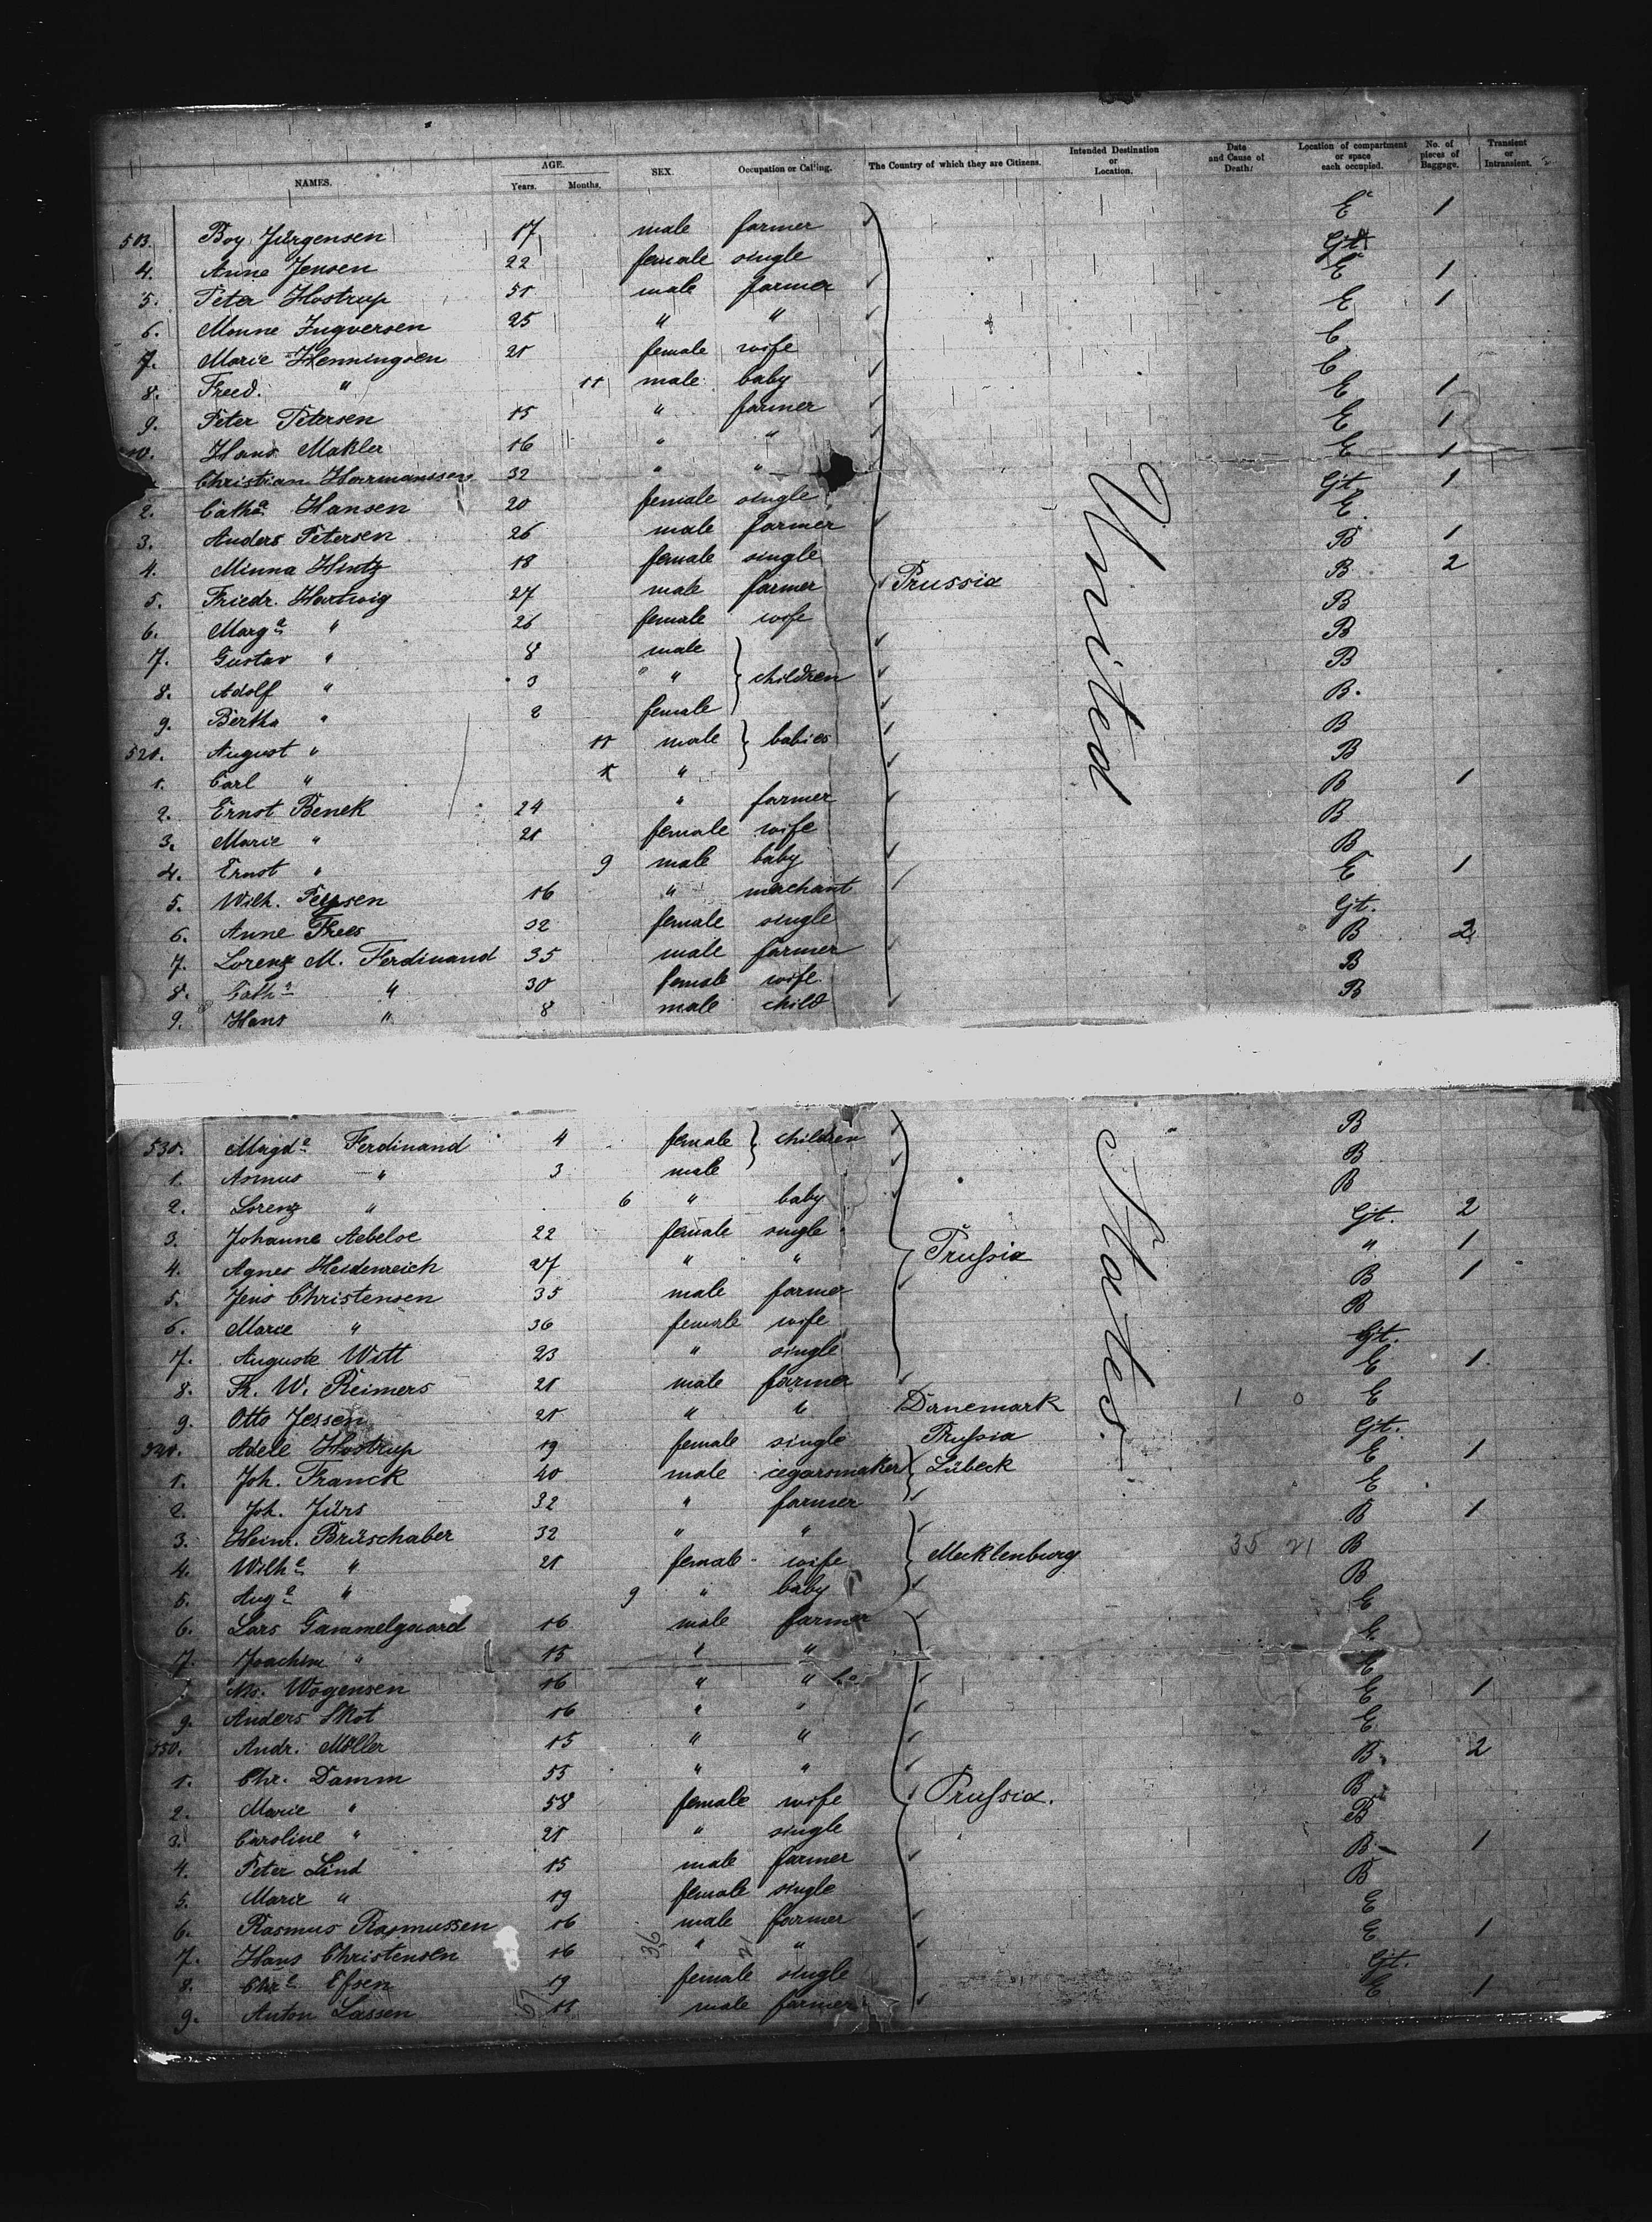 NAMES. AGE. Years. Months. SEX. Occupation or Calling. The Country of which they are Citizens. Intended Destination or Location. Date and Cause of Death. Location of compartment or space each occupied. No. of pieces of Baggage. Transient or Intransient.
503. Boy Jürgensen 17 male farmer E 1
4. Anne Jensen 22 female single Gt.
5. Peter Hostrup 51 male farmer E 1
6. Monne Ingversen 25 " " E 1
7. Marie Henningsen 21 female wife C
8. Freed. " 11 male baby C
9. Peter Petersen 15 " farmer E 1
10. Hans Makler 16 " " E 1
Christian Harmanssen 32 " " E 1
2. Catha Hansen 20 female single Gt. 1
3. Anders Petersen 26 male farmer E
4. Minna Hintz 18 female single B 1
5. Friedr. Hartwig 27 male farmer Prussia B 2
6. Marga " 26 female wife B
7. Gustav " 8 male B
8. Adolf " 3 " children B
9. Bertha " 2 female B.
521. August " 11 male babies B
1. Carl " " B
2. Ernst Benek 24 " farmer B 1
3. Marie " 21 female wife B
4. Ernst " 9 male baby B
5. Wilh. 16 " merchant E 1
6. Anne Frees 32 female single Gt.
7. Lorenz M. Ferdinand 35 male farmer B 2
8. Catha " 30 female wife B
9. Hans " 8 male child B
United
530. Magda Ferdinand 4 female children B
1. Asmus " 3 male B
2. Lorenz " 6 " baby B
3. Johanne Aebeloe 22 female single Gt. 2
4. Agnes Heidenreich 27 " " Prussia " 1
5. Jens Christensen 35 male farmer B 1
6. Marie " 36 female wife B
7. Auguste Witt 23 " single Gt.
8. Fr. W. Reimers 21 male farmer E 1
9. Otto Jessen 21 " " Danemark 1 0 E
540. Adele Hostrup 19 female single Prussia Gt.
1. Joh. Franck 20 male cegarsmaker Lübeck E 1
2. Joh. Jürs 32 " farmer E
3. Heinr. Brüschaber 32 " " B 1
4. Wilha " 21 female wife Mecklenburg 35 21 B
5. Auga " 9 " baby B
6. Lars Gammelgaard 16 male farmer E
7. Joachim " 15 " " E
Ms. Wogensen 16 " " E
9. Anders Skot 16 " " E 1
550. Andr. Möller 15 " " E
1. Chr. Damm 55 " " B 2
2. Marie " 58 female wife Prussia. B
3. Caroline " 21 " single B
4. Peter Lind 15 male farmer B 1
5. Marie " 19 female single B
6. Rasmus Rasmussen 16 male farmer E
7. Hans Christensen 16 " " E 1
8. Chra Essen 19 female single Gt.
9. Anton Lassen male farmer E 1
36 21
States.